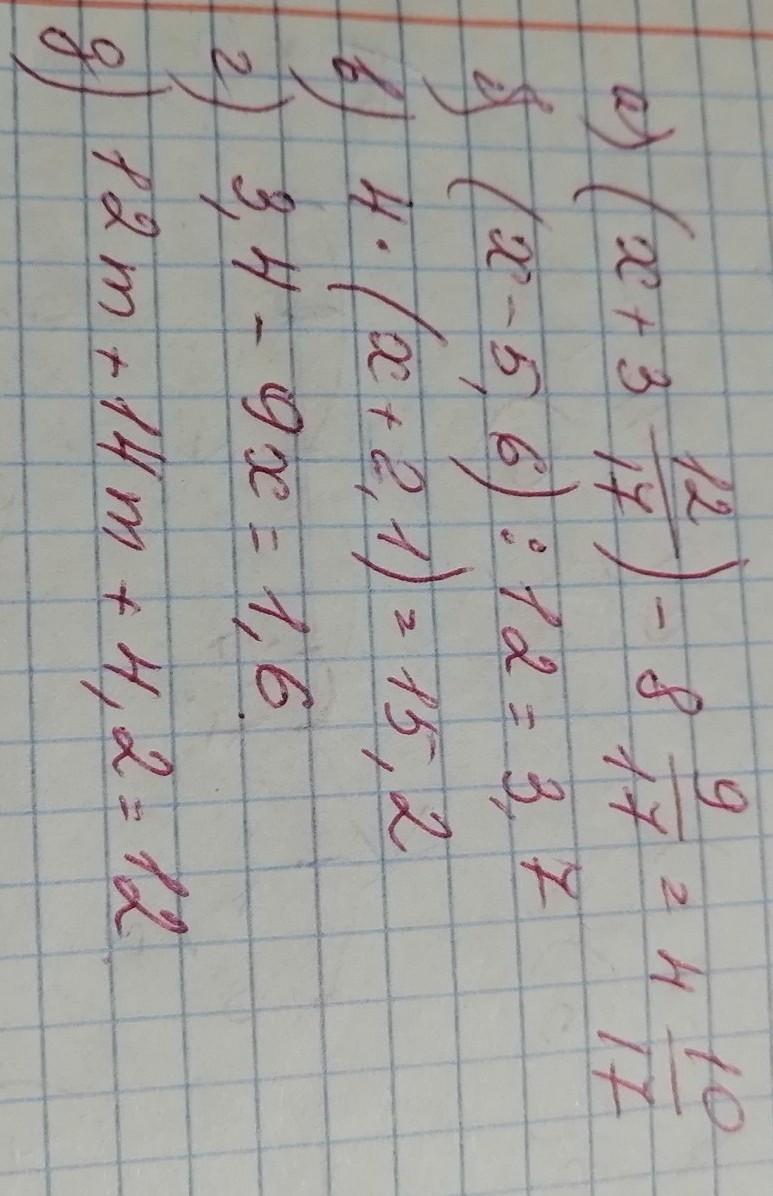 а) (x + 3 12/17) - 8 9/17 = 4 10/17
б) (x - 5,6) : 12 = 3,7
в) 4 · (x + 2,1) = 15,2
г) 3,4 - 9x = 1,6
д) 12m + 14m + 4,2 = 12